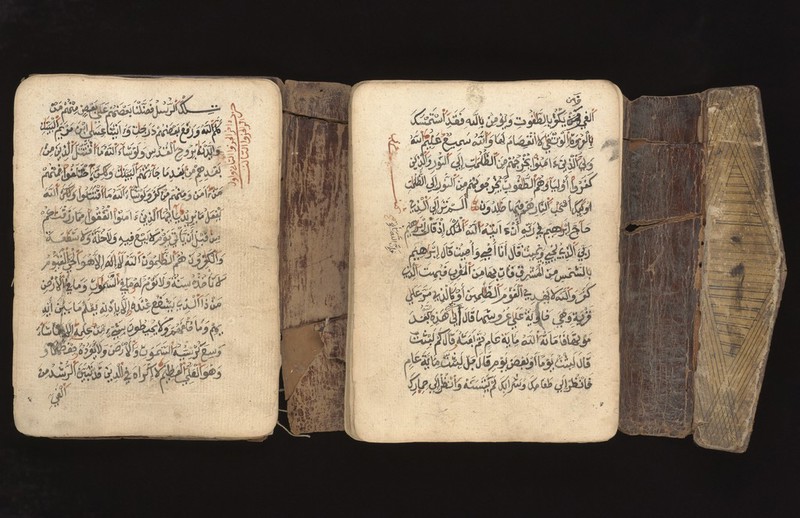 تلك الرسل فضلنا بعضهم على بعض منهم من
كلم الله ورفع بعضهم درجت وءاتينا عيسى ابن مريم البينت
وأيدناه بروح القدس ولو شاء الله ما اقتتل الذين من
بعدهم من بعد ما جاءتهم البينت ولكن اختلفوا فمنهم
من ءامن ومنهم من كفر ولو شاء الله ما اقتتلوا ولكن الله
يفعل ما يريد يأيها الذين ءامنوا انفقوا مما رزقنكم
من قبل أن يأتي يوم لا بيع فيه ولا خلة ولا شفعة
والكفرون هم الظلمون الله لا إله إلا هو الحي القيوم
لا تأخذه سنة ولا نوم له ما في السموت وما في الأرض
من ذا الذي يشفع عنده إلا بإذنه يعلم ما بين أيد
يهم وما خلفهم ولا يحيطون بشيء من علمه إلا بما شاء
وسع كرسيه السموت والأرض ولا يؤده حفظهما
وهو العلي العظيم لا إكراه في الدين قد تبين الرشد من
الغي
الغي فمن يكفر بالطغوت ويؤمن بالله فقد استمسك
بالعروة الوثقى لا انفصام لها والله سميع عليم الله
ولي الذين ءامنوا يخرجهم من الظلمت إلى النور والذين
كفروا أولياؤهم الطغوت يخرجونهم من النور إلى الظلمت
أولئك أصحب النار هم فيها خلدون ألم تر إلى الذي
حاج إبراهيم في ربه أن ءاتيه الله الملك إذ قال إبرهيم
ربي الذي يحي ويميت قال أنا أحي وأميت قال إبراهيم
بالشمس من المشرق فات بها من المغرب فبهت الذي
كفر والله لا يهدي القوم الظلمين أو كالذي مر على
قرية وهي خاوية على عروشها قال أنى هذه بعد
موتها فأماته الله مائة عام ثم بعثه قال كم لبثت
قال لبثت يوما أو بعض يوم قال بل لبثت مائة عام
فانظر إلى طعامك وشرابك لم يتسنه وانظر إلى حمارك